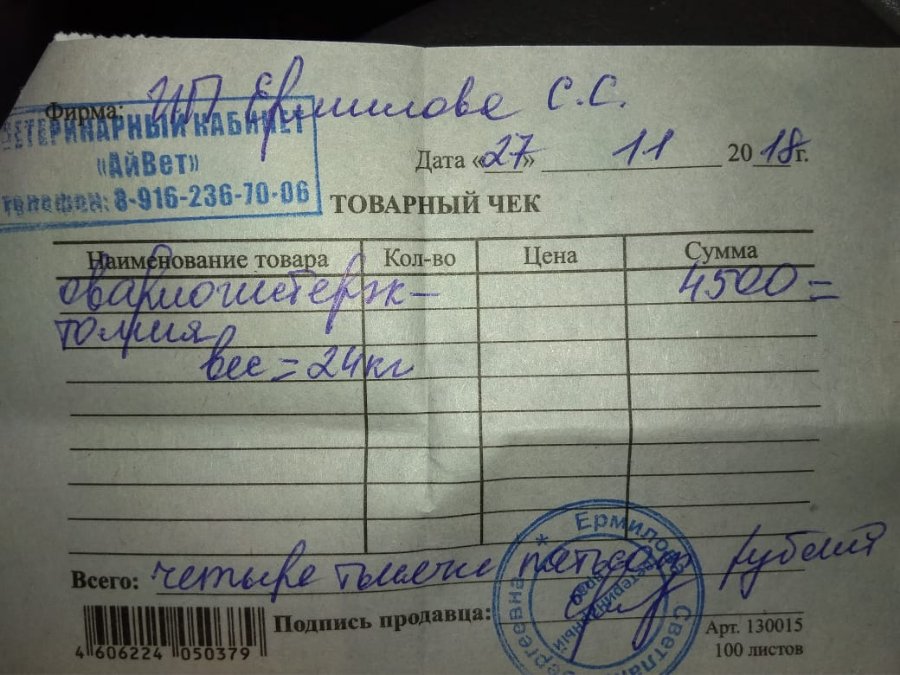 Фирма: ИП Ермилова С.С.
ВЕТЕРИНАРНЫЙ КАБИНЕТ
«АйВет»
телефон: 8-916-236-70-06
Дата «27» 11 2018г.
ТОВАРНЫЙ ЧЕК
Наименование товара Кол-во Цена Сумма
овариогистерэк- 4500=
томия
вес = 24кг
Всего: четыре тысячи пятьсот рублей
Подпись продавца:
Ермилова Светлана Сергеевна
Ветеринарный
врач
Арт. 130015
100 листов
4 606224 050379